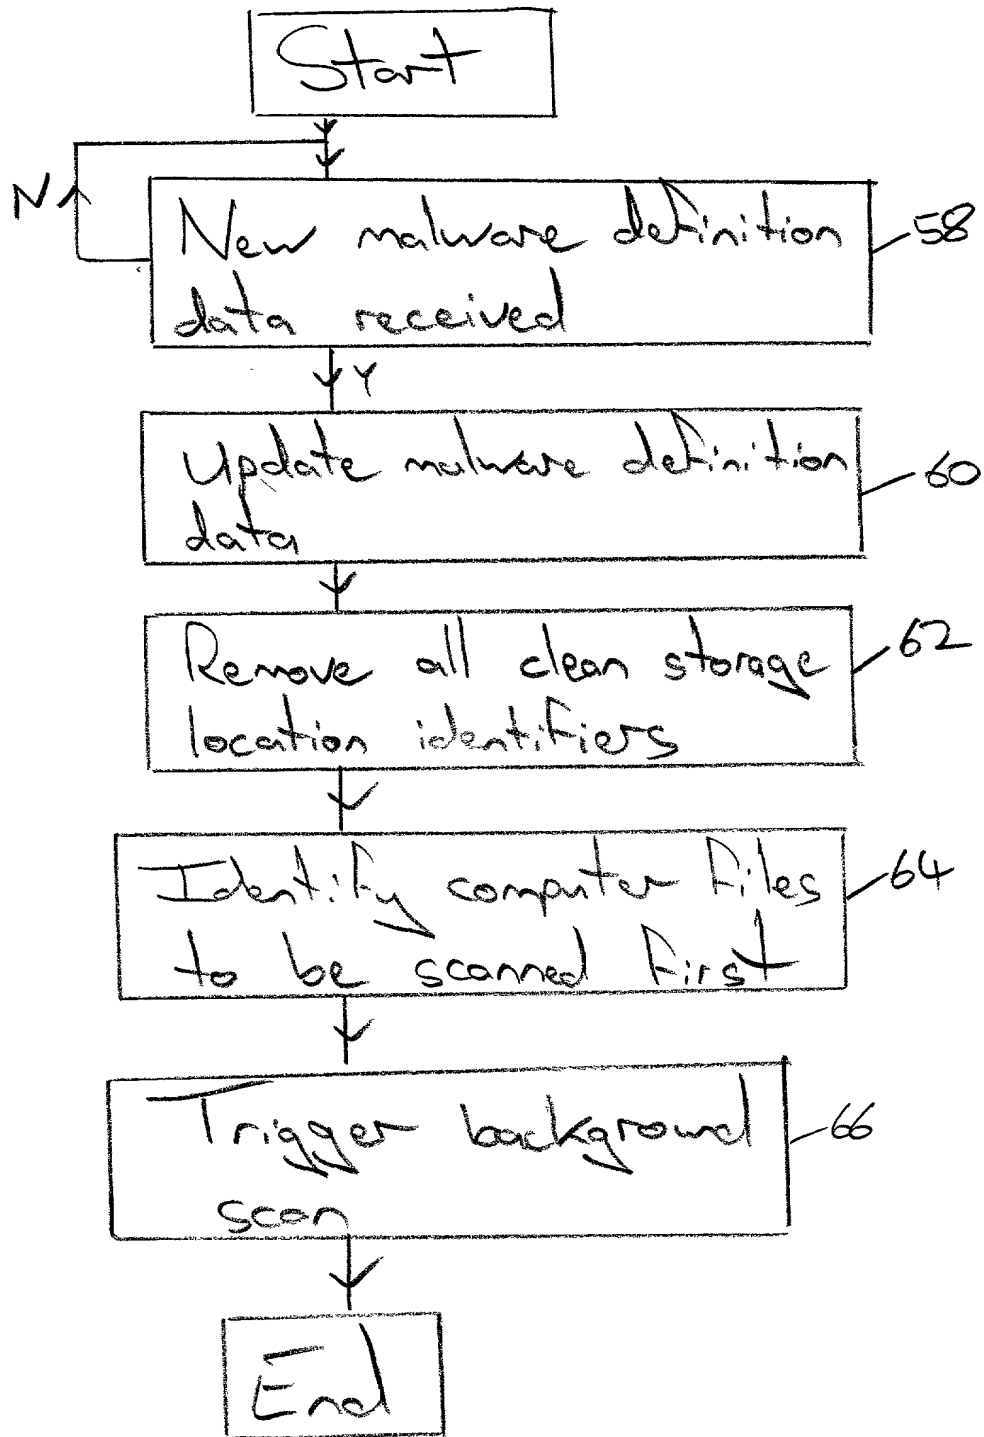 Start
N
New malware definition
data received
58
Y
Update malware definition
data
60
Remove all clean storage
location identifiers
62
Identify computer files
to be scanned first
64
Trigger background
scan
66
End